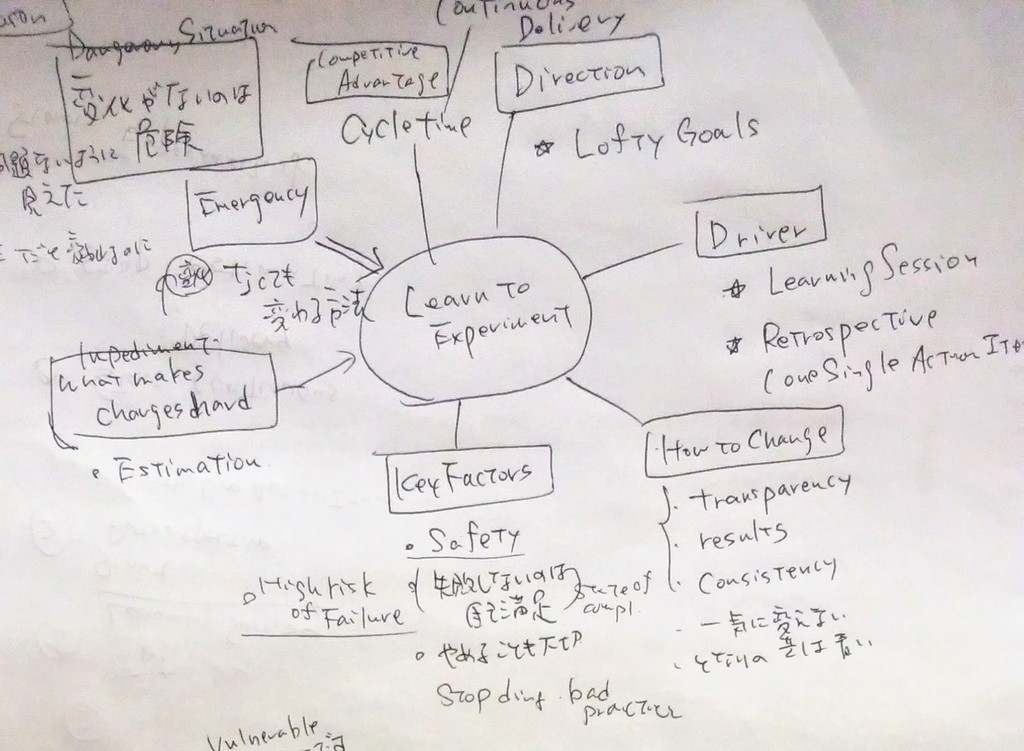 Continuous
Delivery
Dangerous Situation
変化がないのは
危険
問題ないように
見えた
Competitive
Advantage
Cycle time
Direction
☆ Lofty Goals
Emergency
変化
なくても
変わる方法
Learn to
Experiment
Driver
☆ Learning Session
☆ Retrospective
(one Single Action Item
Impediment:
What makes
changes hard
• Estimation
Key Factors
• Safety
• High risk
of Failure
失敗しないのは
自己満足
State of
compl.
• やめることも大切
Stop ding bad
practice
How to Change
• transparency
• results
• Consistency
• 一気に変えない
• となりの芝は青い
Vulnerable